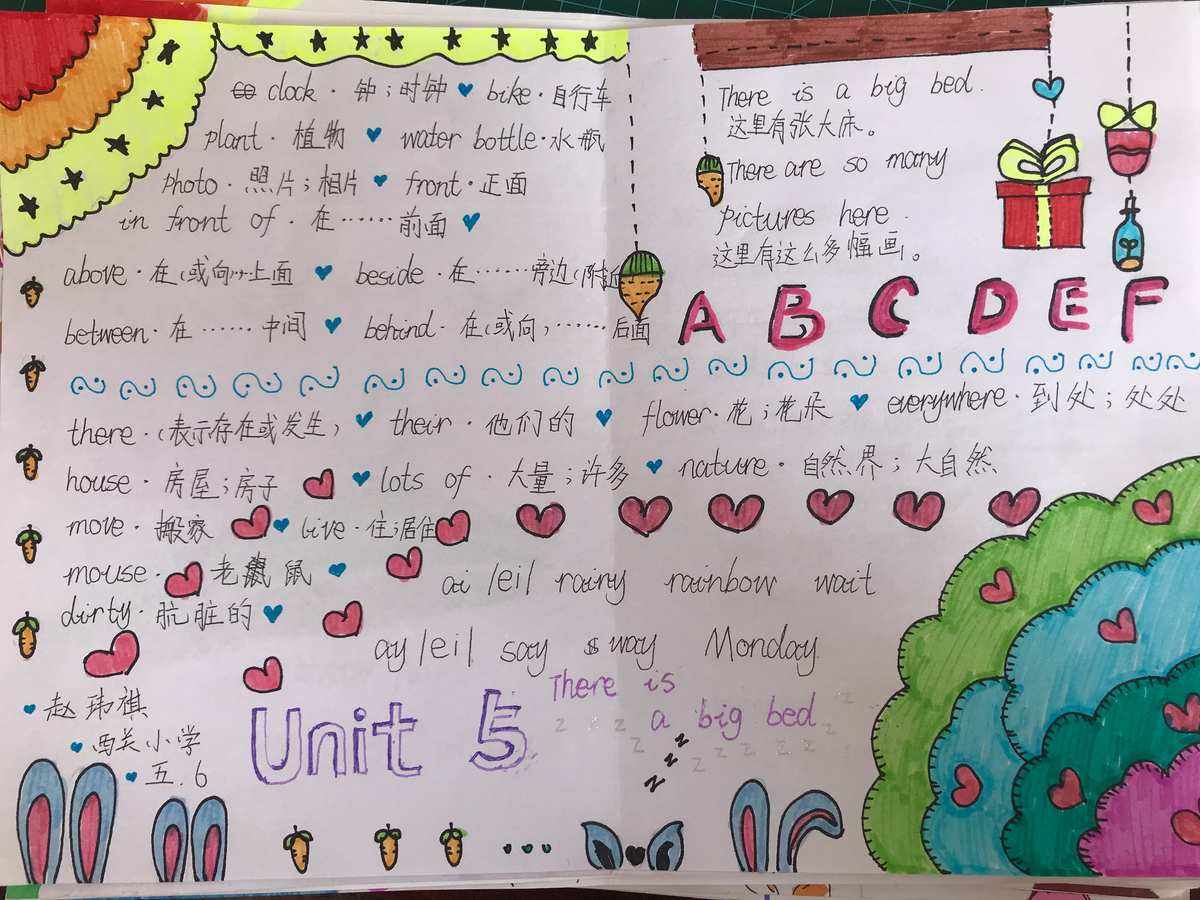 clock · 钟；时钟 bike · 自行车
plant · 植物 water bottle · 水瓶
photo · 照片；相片 front · 正面
in front of · 在……前面
above · 在(或向)…上面 beside · 在……旁边(附近
between · 在……中间 behind · 在(或向)……后面
There is a big bed.
这里有张大床。
There are so many
pictures here.
这里有这么多幅画。
A B C D E F
there · (表示存在或发生) their · 他们的 flower · 花；花朵 everywhere · 到处；处处
house · 房屋；房子 lots of · 大量；许多 nature · 自然界；大自然
move · 搬家 live · 住；居住
mouse · 老鼠
dirty · 肮脏的
ai /ei/ rainy rainbow wait
ay /ei/ say way Monday
赵玮祺
西关小学
五.6
Unit 5
There is
a big bed
z z z z z z z z z z
z
z
z